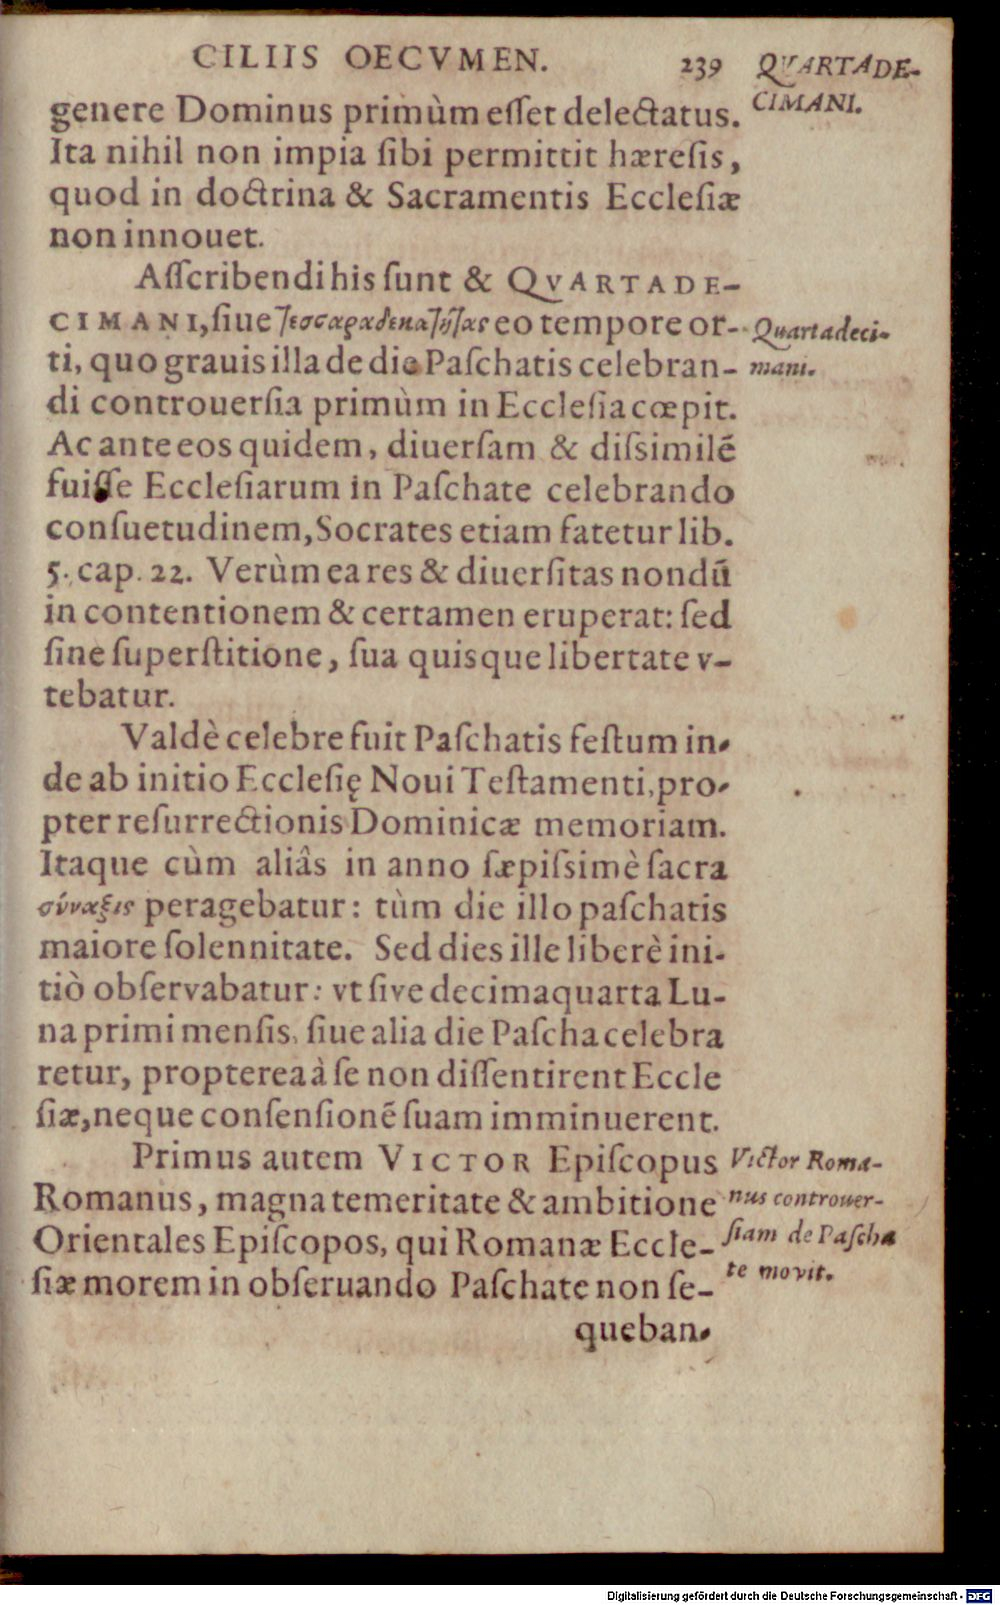 CILIIS OECVMEN. 239
QVARTADE-
CIMANI.
genere Dominus primùm eſſet delectatus.
Ita nihil non impia ſibi permittit hæreſis,
quod in doctrina & Sacramentis Eccleſiæ
non innouet.
Aſſcribendi his ſunt & QVARTADE-
CIMANI, ſiue τεσσαραδεκατήτας eo tempore or-
Quartadeci-
mani.
ti, quo grauis illa de die Paſchatis celebran-
di controuerſia primùm in Eccleſia cœpit.
Ac ante eos quidem, diuerſam & diſsimilē
fuiſſe Eccleſiarum in Paſchate celebrando
conſuetudinem, Socrates etiam fatetur lib.
5. cap. 22. Verùm ea res & diuerſitas nondū
in contentionem & certamen eruperat: ſed
ſine ſuperſtitione, ſua quisque libertate v-
tebatur.
Valdè celebre fuit Paſchatis feſtum in-
de ab initio Eccleſię Noui Teſtamenti, pro-
pter reſurrectionis Dominicæ memoriam.
Itaque cùm aliâs in anno ſæpiſsimè ſacra
σύναξις peragebatur: tùm die illo paſchatis
maiore ſolennitate. Sed dies ille liberè ini-
tiò obſervabatur: vt ſive decimaquarta Lu-
na primi menſis, ſiue alia die Paſcha celebra
retur, propterea à ſe non diſſentirent Eccle
ſiæ, neque conſenſionē ſuam imminuerent.
Primus autem VICTOR Epiſcopus
Romanus, magna temeritate & ambitione
Orientales Epiſcopos, qui Romanæ Eccle-
ſiæ morem in obſeruando Paſchate non ſe-
Victor Roma-
nus controuer-
ſiam de Paſcha
te movit.
queban-
Digitalisierung gefördert durch die Deutsche Forschungsgemeinschaft - DFG